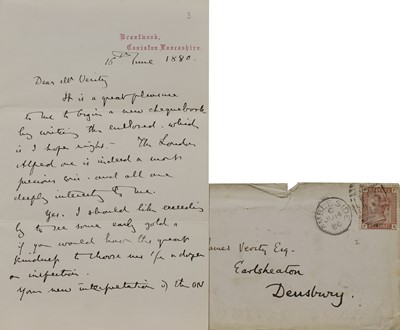 3
Brentwood,
Coniston, Lancashire.
15th June 1880.
Dear Mr Verity
It is a great pleasure
to me to begin a new chequebook
by writing the enclosed - which
is I hope right - The London
Alfred one is indeed a most
precious coin - and all one
deeply interests me.
Yes. I should like exceeding
ly to see some early gold &
if you would have the great
kindness to choose me or a dozen
on inspection.
Your new interpretation of the ON
AMBLESIDE
James Verity Esq.
Earlsheaton
Dewsbury.
2